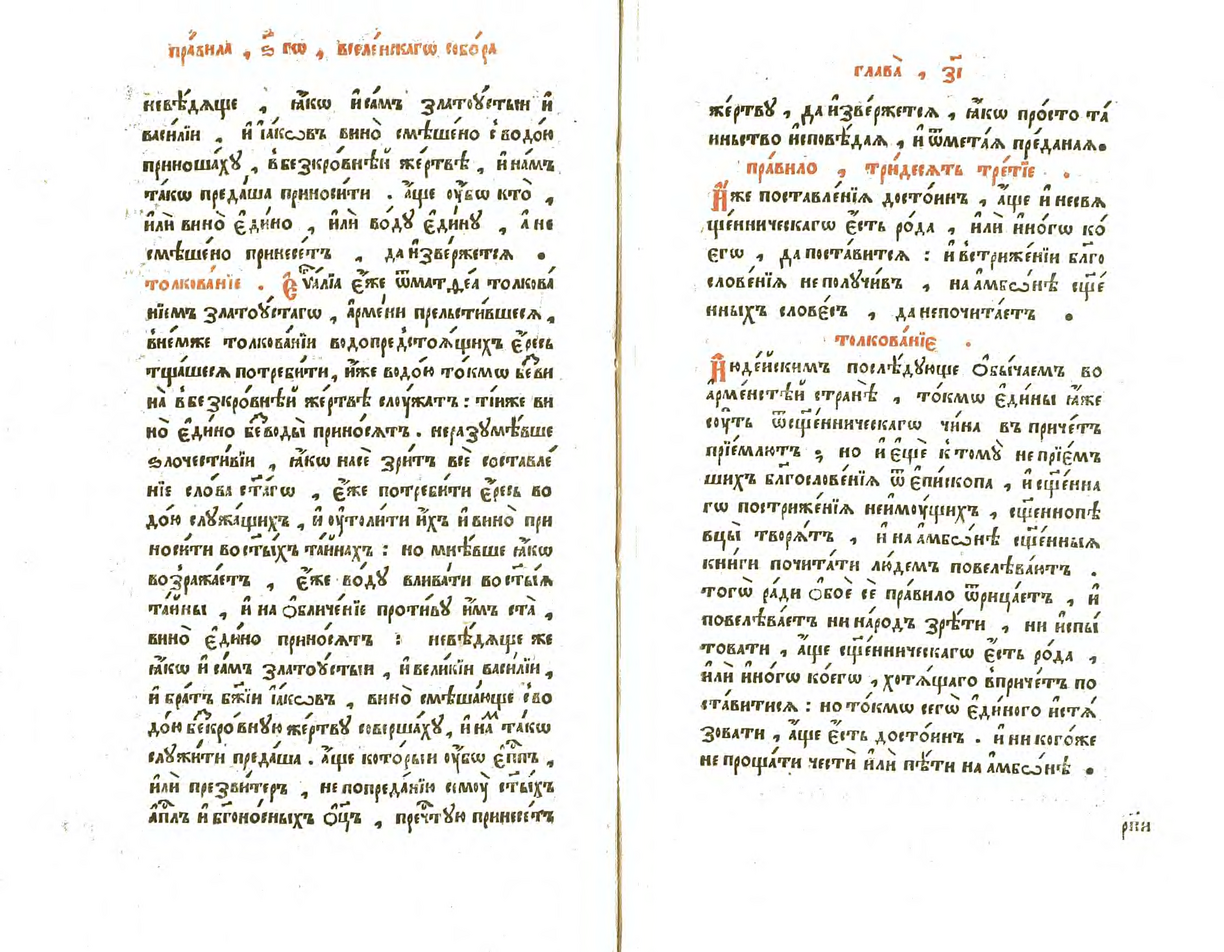 пра́вила , ѕ҃ гѡ , вселе́нскагѡ собо́ра
невѣ́дѧще , ꙗ҆́кѡ и҆са́мъ златоꙋ́стыи и҆
васи́лїи , и҆ і҆а́кѡвъ вино̀ смѣ́шено сводо́ю
приноша́хꙋ , вбезкро́внѣй же́ртвѣ , и҆на́мъ
та́кѡ преда́ша приноси́ти . а҆́ще оу҆́бѡ кто̀ ,
и҆лѝ вино̀ є҆ди́но , и҆лѝ во́дꙋ є҆ди́нꙋ , а҆ не
смѣ́шено принесе́тъ , да и҆зве́ржетсѧ .
толкова́нїе . Є҆ѵа́лїа є҆́же ѿмат.дѳа толкова́
нїемъ златоꙋ́стагѡ , а҆рме́ни прельсти́вшесѧ ,
вне́мже толкова́нїи водопредстоѧ́щихъ є҆́ресь
тща́шесѧ потреби́ти , и҆́же водо́ю то́кмѡ бе́зви
на̀ вбезкро́внѣй же́ртвѣ слоу́жатъ : ті́иже ви
но̀ є҆ди́но без̾воды̀ прино́сѧтъ . неразꙋмѣ́вше
ѕлочести́вїи , ꙗ҆́кѡ насѐ зри́тъ всѐ составле́
нїе сло́ва ст҃а́гѡ , є҆́же потреби́ти є҆́ресь во
до́ю слꙋ́жащихъ , и҆ оу҆толи́ти и҆́хъ и҆ вино̀ при
носи́ти во ст҃ы́хъ та́йнахъ : но мнѣ́вше ꙗ҆́кѡ
возража́етъ , є҆́же во́дꙋ влива́ти во ст҃ы́ѧ
та́йны , и҆ на ѻ҆бличе́нїе проти́вꙋ и҆́мъ ста̀ ,
вино̀ є҆ди́но прино́сѧтъ : невѣ́дѧще же
ꙗ҆́кѡ и҆ са́мъ златоꙋ́стыи , и҆ вели́кїи васи́лїи ,
и҆ бра́тъ бж҃їи і҆а́кѡвъ , вино̀ смѣша́юще сво
до́ю безкро́внꙋю же́ртвꙋ соверша́хꙋ , и҆ на́мъ та́кѡ
слꙋжи́ти преда́ша . а҆́ще кото́рыи оу҆́бѡ є҆пⷭ҇пъ ,
и҆лѝ презви́теръ , не попреда́нїю семоу̀ ст҃ы́хъ
а҆п҃лъ и҆ бг҃оно́сныхъ ѻ҆ц҃ъ , пречⷭ҇тꙋю принесе́тъ
глава̀ , з҃і
же́ртвꙋ , да и҆зве́ржетсѧ , ꙗ҆́кѡ про́сто та́
иньство и҆сповѣ́даѧ , и҆ ѿмета́ѧ пре́данаѧ.
пра́вило , три́десѧть тре́тїе .
И҆́же поставле́нїѧ досто́инъ , а҆́ще и҆ несвѧ
ще́нническагѡ є҆́сть ро́да , и҆лѝ и҆но́гѡ ко́
егѡ , да поста́витсѧ : и҆ встриже́нїи благо
слове́нїѧ не полꙋчи́въ , на а҆мбѡ́нѣ сщ҃е́
нныхъ слове́съ , да непочита́етъ .
толкова́нїе .
И҆юде́йскимъ послѣ́дꙋюще ѻ҆бы́чаемъ во
а҆рме́нстѣй странѣ̀ , то́кмѡ є҆ди́ны ꙗ҆́же
соу́ть ѿ сщ҃е́нническагѡ чи́на въ приче́тъ
прїе́млютъ ; но и҆ є҆щѐ к томꙋ̀ не прїе́мъ
шихъ бл҃гослове́нїѧ ѿ є҆пи́скопа , и҆ сщ҃е́нна
гѡ постриже́нїѧ неимоу́щихъ , сщ҃еннопѣ
вцы̀ творѧ́тъ , и҆ на а҆мбѡ́нѣ сщ҃е́нныѧ
кни́ги почита́ти лю́демъ повелѣва́ютъ .
тогѡ̀ ра́ди ѻ҆бо́е сѐ пра́вило ѿрица́етъ , и҆
повелѣва́етъ ни на́родъ зрѣ́ти , ни и҆спы́
товати , а҆́ще сщ҃е́нническагѡ є҆́сть ро́да ,
и҆лѝ и҆но́гѡ ко́егѡ , хотѧ́щаго вприче́тъ по
ста́витисѧ : но то́кмѡ сегѡ̀ є҆ди́ного и҆стѧ
зова́ти , а҆́ще є҆́сть досто́инъ . и҆ ни кого́же
не проща́ти че́сти и҆лѝ пѣ́ти на а҆мбѡ́нѣ .
рн҃и